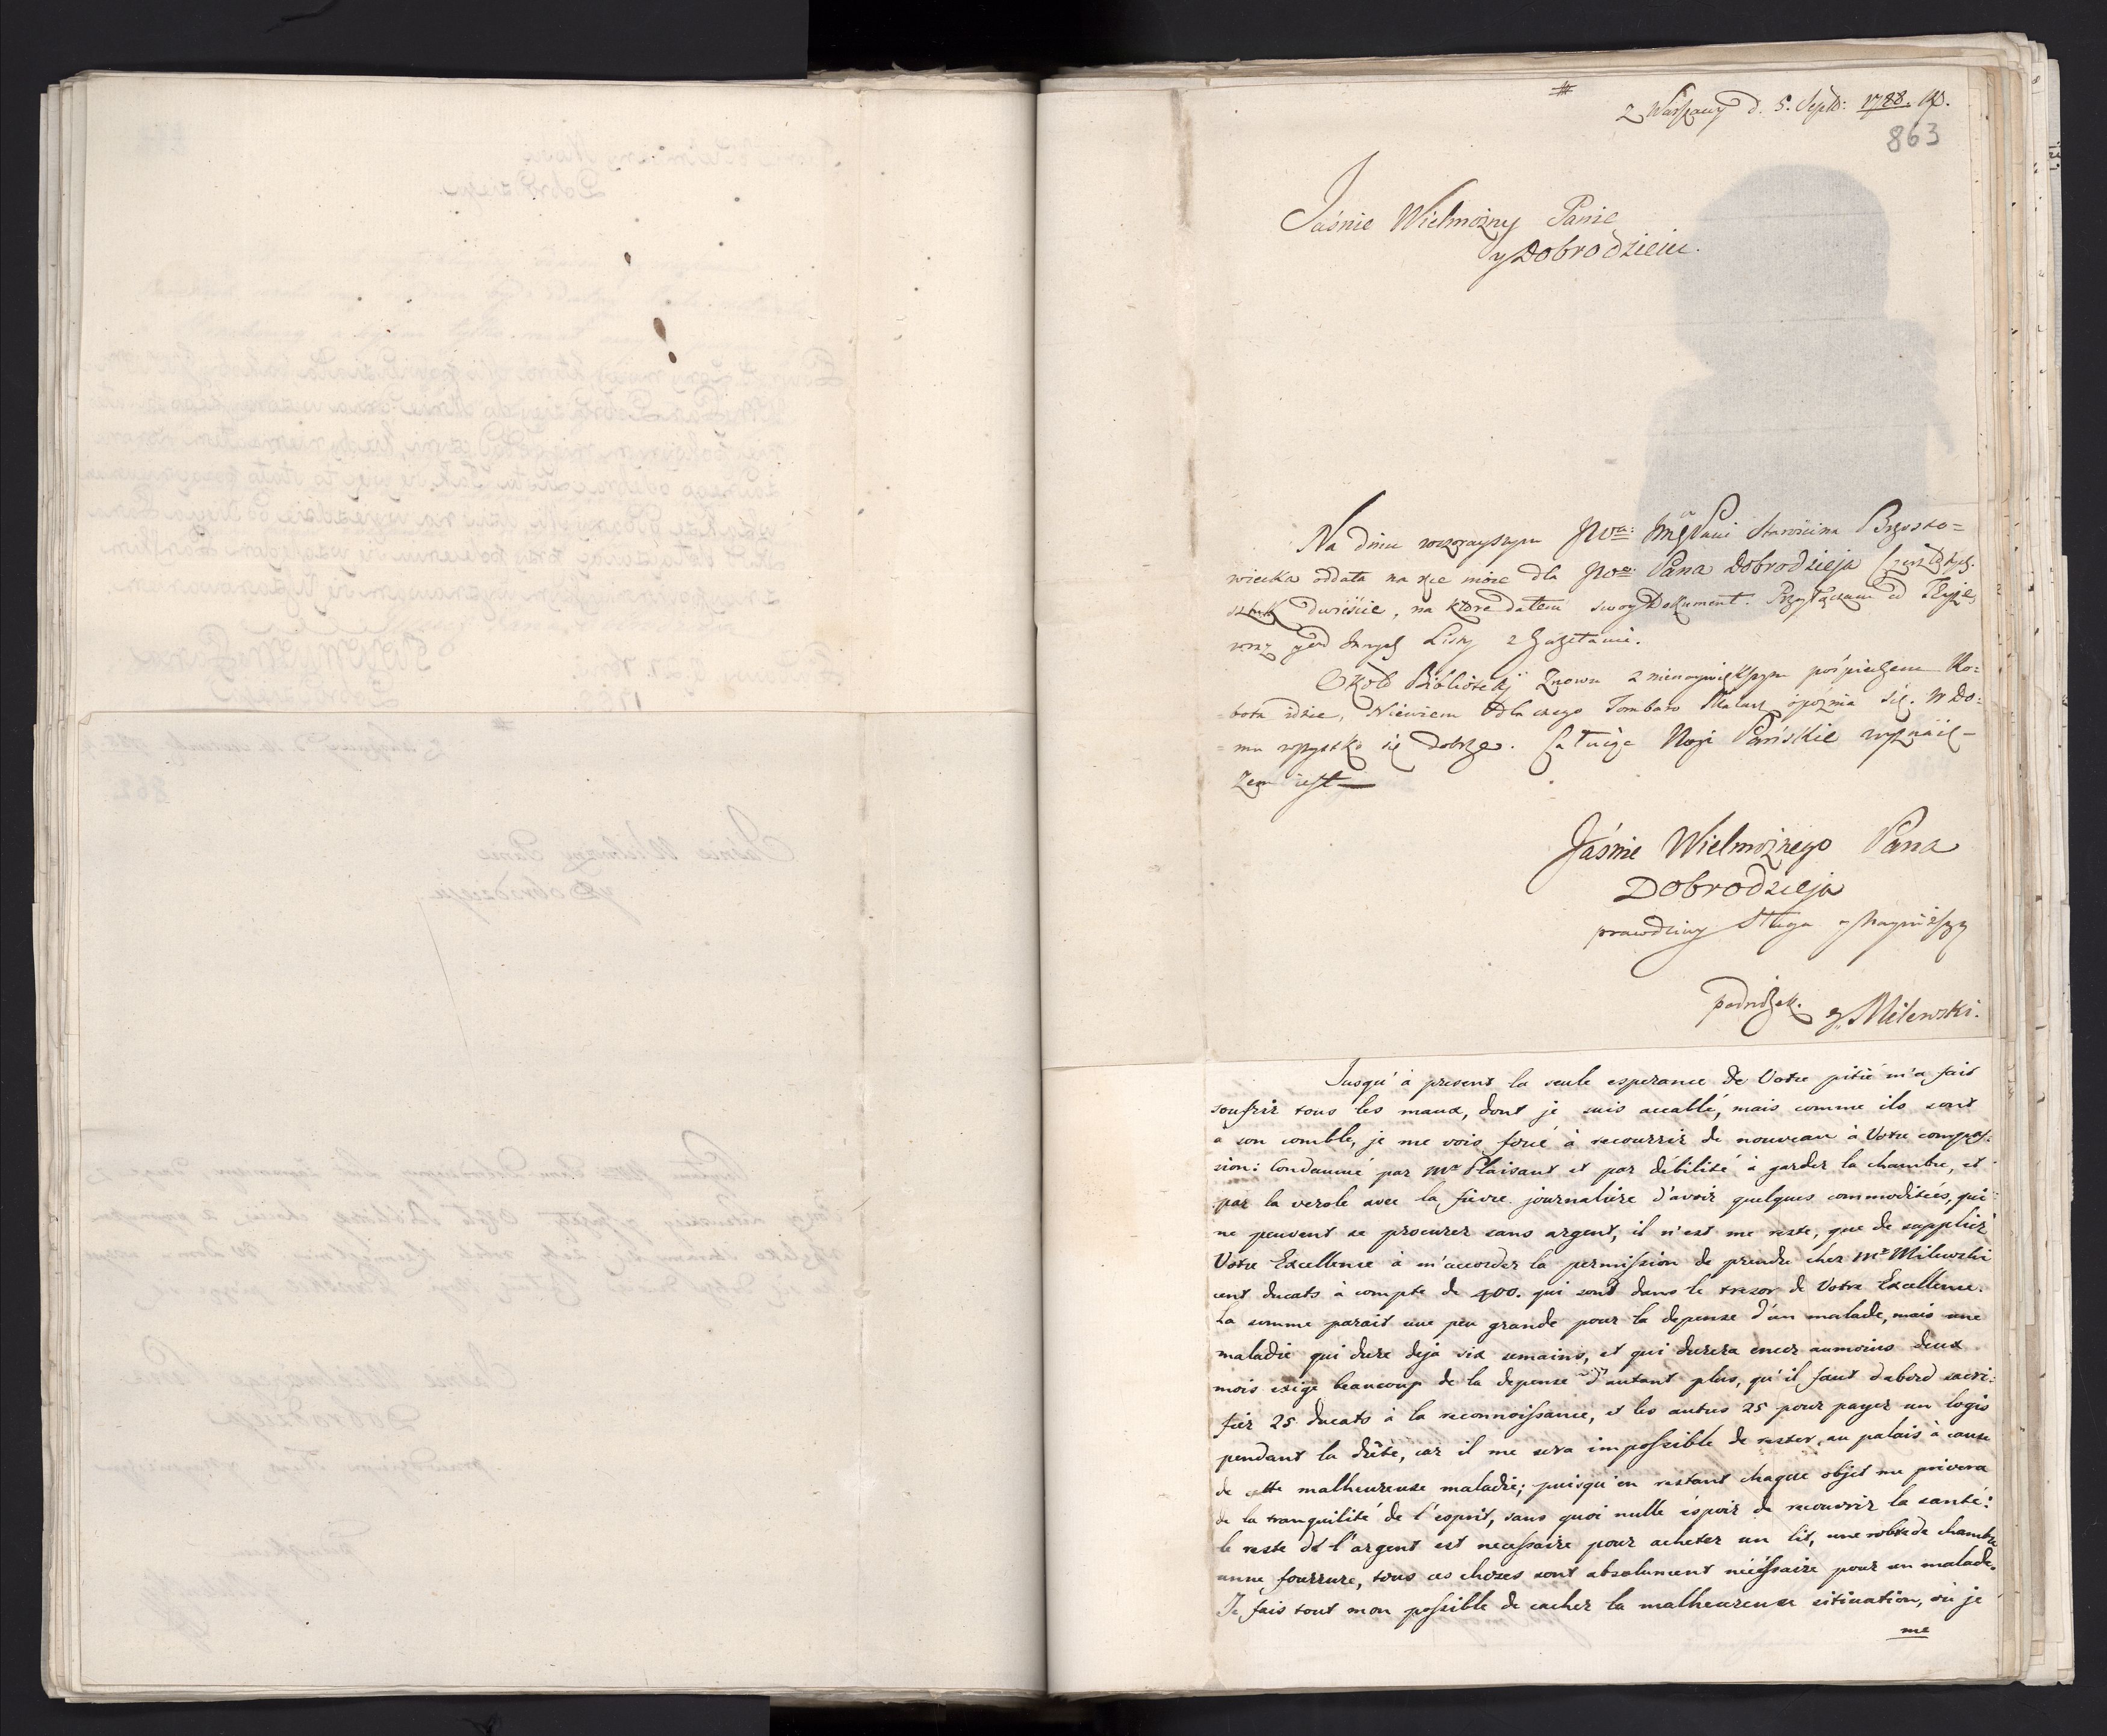 #
z Warszawy d. 5. Septb: 1788. Ro.
863
Jaśnie Wielmożny Panie
y Dobrodzieiu.
Na dniu wczorayszym JWa: Imę Pani Starościna Brzosto=
wiecka oddała na ręce moie dla JWo: Pana Dobrodzieja Czer: Złtych
sztuk dwieście, na które dałem swoy Dokument. Przyłączam od Teyże,
oraz y od Innych Listy z Gazetami.
Okoł Biblioteki znowu z nienaywiększym pośpiechem Ro=
bota idzie, Niewiem dla czego Tombaro Malarz opoźnia się. W Do=
mu wszystko się dobrze. Całuięc Nogi Pańskie wyznaię
żem iest
Jaśnie Wielmożnego Pana
Dobrodzieja
prawdziwy Sługa y Nayniższy
podnóżek. Milewski.
Jusqu'à present la seule esperance de Votre pitié m'a fait
soufrir tous les maux, dont je suis accablé, mais comme ils sont
a son comble, je me vois forcé à recourrir de nouveau à Votre compas-
sion: Condamné par Mr Plaisant et par débilité à garder la chambre, et
par la verole avec la fievre journaliere d'avoir quelques commoditiés, qui
ne peuvent se procurer sans argent, il n'est me reste, que de supplier
Votre Excellence à m'accorder la permission de prendre chez Mr Milewski
cent ducats à compte de 400. qui sont dans le tresor de Votre Excellence.
La somme parait une peu grande pour la depense d'un malade, mais une
maladie qui dure deja six semains, et qui durera encor aumoins deux
mois exige beaucoup de la depense d'autant plus, qu'il faut d'abord sacri-
fier 25 ducats à la reconnoissance, et les autres 25 pour payer un logis
pendant la diète, car il me sera impossible de rester au palais à cause
de cette malheureuse maladie; puisqu'en restant chaque objet me privera
de la tranquilité de l'esprit, sans quoi nulle espoir de recouvrir la santé:
le reste de l'argent est necessaire pour acheter un lit, une robbe de chambre
unne fourrure, tous ces choses sont absolument nécessaire pour un malade.
Je fais tout mon possible de cacher la malheureuse sitiuation, où je
me